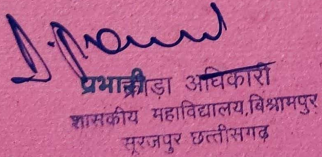 प्रभारी क्रीड़ा अधिकारी
शासकीय महाविद्यालय, विश्रामपुर
सूरजपुर छत्तीसगढ़